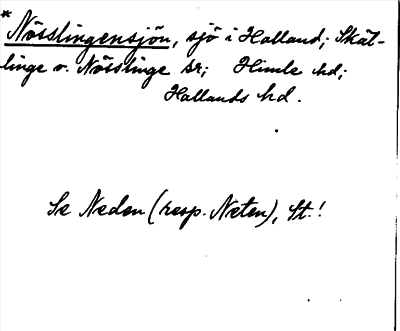 * Nösslingensjön, sjö i Halland; Skäl-
linge o. Nösslinge sr; Himle hd;
Hallands hd.
Se Neden (resp. Neten), St.!